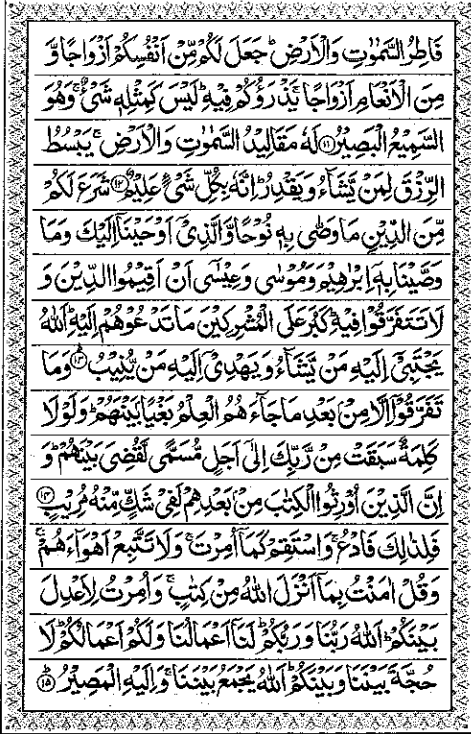 فَاطِرُ السَّمٰوٰتِ وَالْاَرْضِ ؕ جَعَلَ لَكُمْ مِّنْ اَنْفُسِكُمْ اَزْوَاجًا وَّ
مِنَ الْاَنْعَامِ اَزْوَاجًا ۚ يَذْرَؤُكُمْ فِيْهِ ؕ لَيْسَ كَمِثْلِهٖ شَیْءٌ ۚ وَهُوَ
السَّمِيْعُ الْبَصِيْرُ ﴿۱۱﴾ لَهٗ مَقَالِيْدُ السَّمٰوٰتِ وَالْاَرْضِ ۚ يَبْسُطُ
الرِّزْقَ لِمَنْ يَّشَآءُ وَيَقْدِرُ ؕ اِنَّهٗ بِكُلِّ شَیْءٍ عَلِيْمٌ ﴿۱۲﴾ شَرَعَ لَكُمْ
مِّنَ الدِّيْنِ مَا وَصّٰی بِهٖ نُوْحًا وَّالَّذِیْۤ اَوْحَيْنَاۤ اِلَيْكَ وَمَا
وَصَّيْنَا بِهٖۤ اِبْرٰهِيْمَ وَمُوْسٰی وَعِيْسٰۤی اَنْ اَقِيْمُوا الدِّيْنَ وَ
لَا تَتَفَرَّقُوْا فِيْهِ ؕ كَبُرَ عَلَی الْمُشْرِكِيْنَ مَا تَدْعُوْهُمْ اِلَيْهِ ؕ اَللّٰهُ
يَجْتَبِیْۤ اِلَيْهِ مَنْ يَّشَآءُ وَيَهْدِیْۤ اِلَيْهِ مَنْ يُّنِيْبُ ﴿۱۳﴾ وَمَا
تَفَرَّقُوْۤا اِلَّا مِنْۢ بَعْدِ مَا جَآءَهُمُ الْعِلْمُ بَغْيًۢا بَيْنَهُمْ ؕ وَلَوْلَا
كَلِمَةٌ سَبَقَتْ مِنْ رَّبِّكَ اِلٰۤی اَجَلٍ مُّسَمًّی لَّقُضِیَ بَيْنَهُمْ ؕ وَ
اِنَّ الَّذِيْنَ اُوْرِثُوا الْكِتٰبَ مِنْۢ بَعْدِهِمْ لَفِیْ شَكٍّ مِّنْهُ مُرِيْبٍ ﴿۱۴﴾
فَلِذٰلِكَ فَادْعُ ۚ وَاسْتَقِمْ كَمَاۤ اُمِرْتَ ۚ وَلَا تَتَّبِعْ اَهْوَآءَهُمْ ۚ
وَقُلْ اٰمَنْتُ بِمَاۤ اَنْزَلَ اللّٰهُ مِنْ كِتٰبٍ ۚ وَاُمِرْتُ لِاَعْدِلَ
بَيْنَكُمْ ؕ اَللّٰهُ رَبُّنَا وَرَبُّكُمْ ؕ لَنَاۤ اَعْمَالُنَا وَلَكُمْ اَعْمَالُكُمْ ؕ لَا
حُجَّةَ بَيْنَنَا وَبَيْنَكُمْ ؕ اَللّٰهُ يَجْمَعُ بَيْنَنَا ۚ وَاِلَيْهِ الْمَصِيْرُ ﴿۱۵﴾